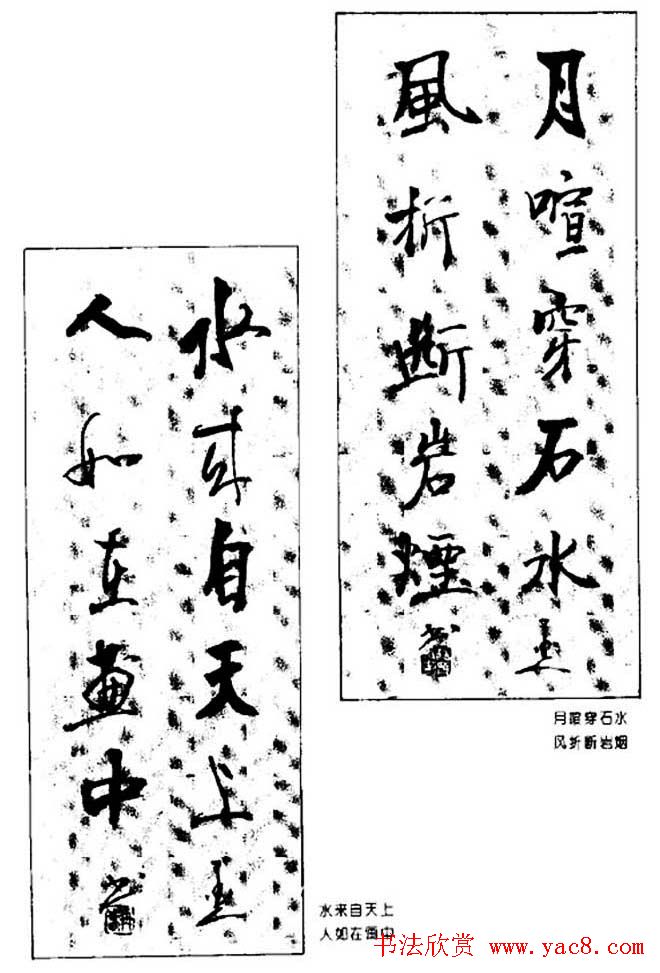 月喧穿石水
風折断岩煙
月喧穿石水
风折断岩烟
水来自天上
人如在畫中
水来自天上
人如在画中
书法欣赏 www.yac8.com